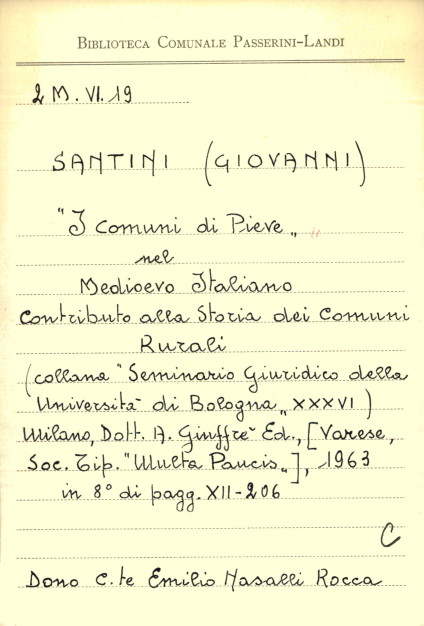 BIBLIOTECA COMUNALE PASSERINI-LANDI
2 M. VI. 19
SANTINI (GIOVANNI)
"I comuni di Pieve„
nel
Medioevo Italiano
Contributo alla Storia dei Comuni
Rurali
(collana "Seminario Giuridico della
Università di Bologna„ XXXVI)
Milano, Dott. A. Giuffrè Ed., [Varese,
Soc. Tip. "Multa Paucis„], 1963
in 8° di pagg. XII-206
C
Dono C.te Emilio Nasalli Rocca